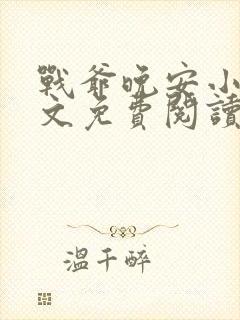 戰爺晚安小
文免費閱讀
溫千醉